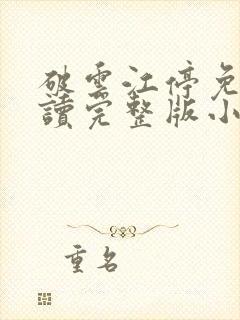 破雲江停免
讀完整版小
重名